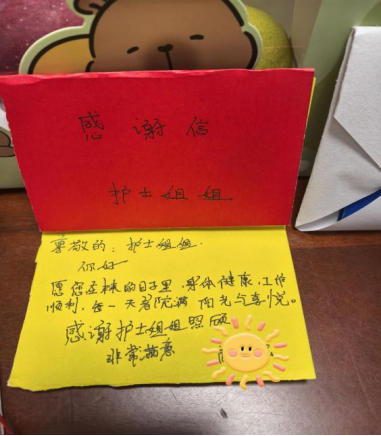 感谢信
护士姐姐
尊敬的:护士姐姐.
你好
愿您在的日子里,身体健康,工作
顺利,每一天都满 阳光气喜悦。
感谢护士姐姐照顾
非常满意